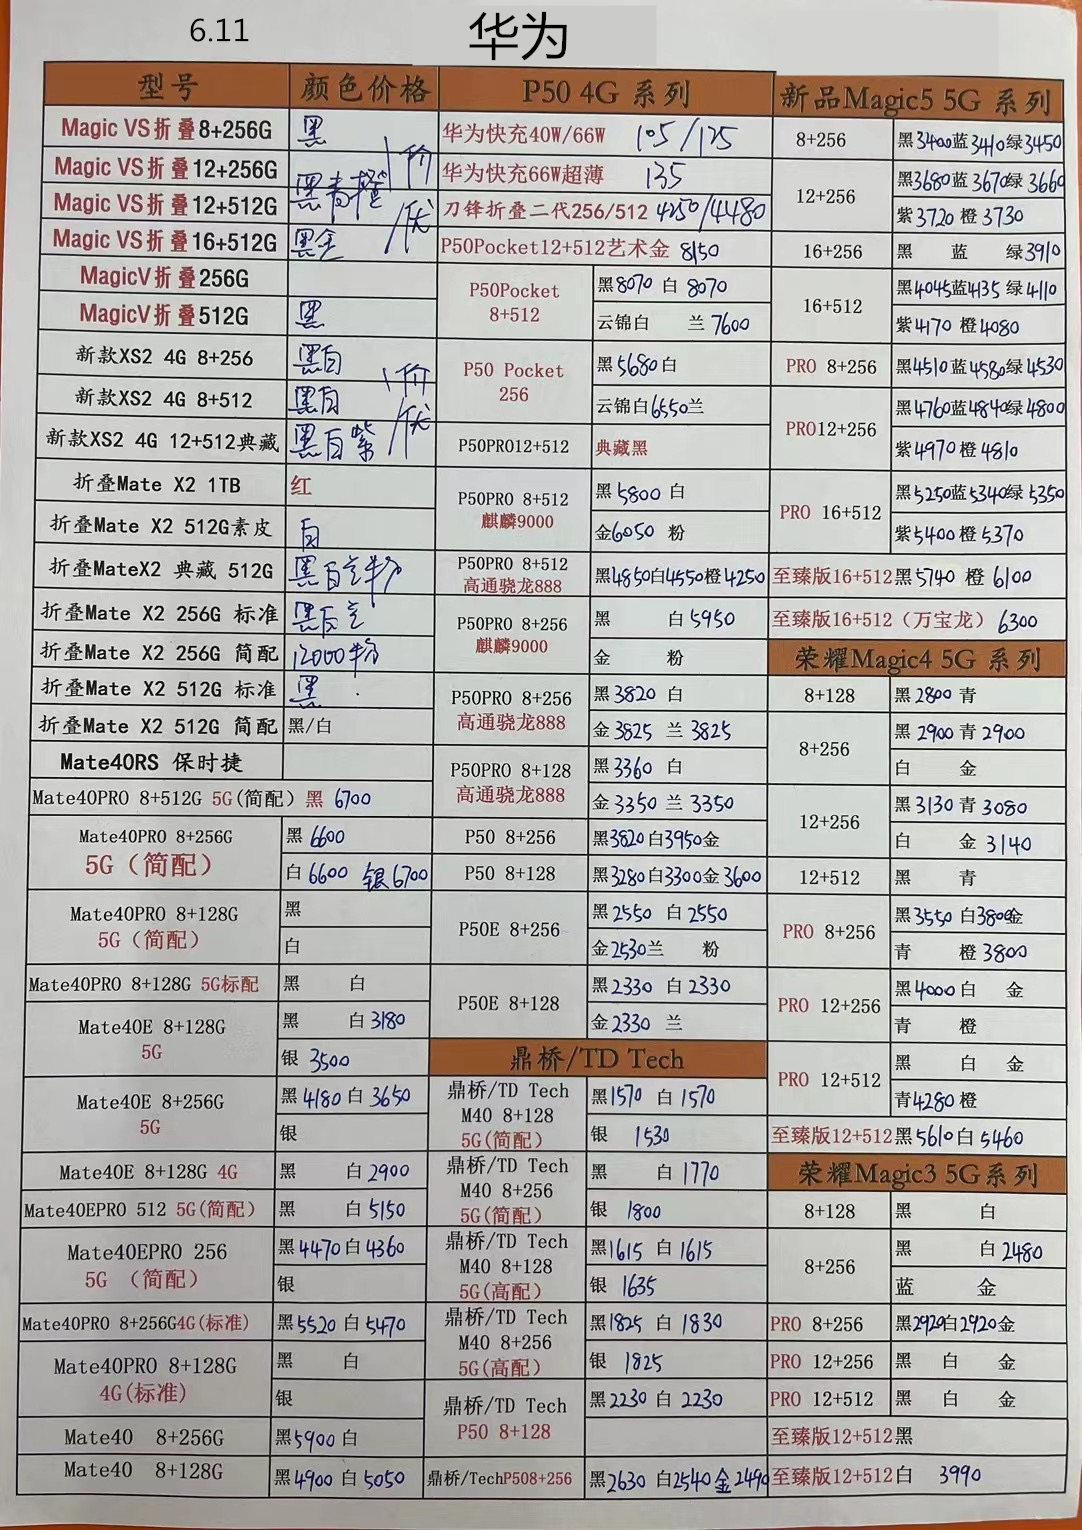 6.11
华为
型号 颜色价格
Magic VS折叠8+256G 黑
Magic VS折叠12+256G
Magic VS折叠12+512G 黑青橙
Magic VS折叠16+512G 黑金
价优
MagicV折叠256G
MagicV折叠512G 黑
新款XS2 4G 8+256 黑白
新款XS2 4G 8+512 黑白
新款XS2 4G 12+512典藏 黑白紫
价优
折叠Mate X2 1TB 红
折叠Mate X2 512G素皮 白
折叠MateX2 典藏 512G 黑白兰粉
折叠Mate X2 256G 标准 黑白兰
折叠Mate X2 256G 简配 12000粉
折叠Mate X2 512G 标准 黑
折叠Mate X2 512G 简配 黑/白
Mate40RS 保时捷
Mate40PRO 8+512G 5G(简配) 黑 6700
Mate40PRO 8+256G
5G（简配）
黑 6600
白 6600 银 6700
Mate40PRO 8+128G
5G（简配）
黑
白
Mate40PRO 8+128G 5G标配 黑 白
Mate40E 8+128G
5G
黑 白 3180
银 3500
Mate40E 8+256G
5G
黑 4180 白 3650
银
Mate40E 8+128G 4G 黑 白 2900
Mate40EPRO 512 5G(简配) 黑 白 5150
Mate40EPRO 256
5G （简配）
黑 4470 白 4360
银
Mate40PRO 8+256G4G(标准) 黑 5520 白 5470
Mate40PRO 8+128G
4G(标准)
黑 白
银
Mate40 8+256G 黑 5900 白
Mate40 8+128G 黑 4900 白 5050
P50 4G 系列
华为快充40W/66W 105/125
华为快充66W超薄 135
刀锋折叠二代256/512 4250/4480
P50Pocket12+512艺术金 8150
P50Pocket
8+512
黑 8070 白 8070
云锦白 兰 7600
P50 Pocket
256
黑 5680 白
云锦白 6550 兰
P50PRO12+512 典藏黑
P50PRO 8+512
麒麟9000
黑 5800 白
金 6050 粉
P50PRO 8+512
高通骁龙888
黑4850白4550橙4250
P50PRO 8+256
麒麟9000
黑 白 5950
金 粉
P50PRO 8+256
高通骁龙888
黑 3820 白
金 3825 兰 3825
P50PRO 8+128
高通骁龙888
黑 3360 白
金 3350 兰 3350
P50 8+256 黑3820白3950金
P50 8+128 黑3280白3300金 3600
P50E 8+256
黑 2550 白 2550
金2530兰 粉
P50E 8+128
黑 2330 白 2330
金 2330 兰
鼎桥/TD Tech
鼎桥/TD Tech
M40 8+128
5G(简配)
黑1570 白 1570
银 1530
鼎桥/TD Tech
M40 8+256
5G(简配)
黑 白 1770
银 1800
鼎桥/TD Tech
M40 8+128
5G(高配)
黑1615 白 1615
银 1635
鼎桥/TD Tech
M40 8+256
5G(高配)
黑1825 白 1830
银 1825
鼎桥/TD Tech
P50 8+128
黑 2230 白 2230
鼎桥/TechP508+256 黑2630 白2540金 2490
新品Magic5 5G 系列
8+256 黑3400蓝3410绿3450
12+256
黑3680蓝 3670绿 3660
紫 3720 橙 3730
16+256 黑 蓝 绿3910
16+512
黑4045蓝4135 绿 4110
紫4170 橙4080
PRO 8+256 黑4510蓝4580绿4530
PRO12+256
黑4760蓝4840绿4800
紫4970 橙4810
PRO 16+512
黑5250蓝5340绿5350
紫5400 橙5370
至臻版16+512黑5740 橙 6100
至臻版16+512（万宝龙） 6300
荣耀Magic4 5G 系列
8+128 黑 2800 青
8+256
黑 2900 青 2900
白 金
12+256
黑 3130 青 3080
白 金 3140
12+512 黑 青
PRO 8+256
黑3550 白3800金
青 橙 3800
PRO 12+256
黑4000白 金
青 橙
PRO 12+512
黑 白 金
青4280橙
至臻版12+512黑5610白 5460
荣耀Magic3 5G系列
8+128 黑 白
8+256
黑 白 2480
蓝 金
PRO 8+256 黑2920白2920金
PRO 12+256 黑 白 金
PRO 12+512 黑 白 金
至臻版12+512黑
至臻版12+512白 3990